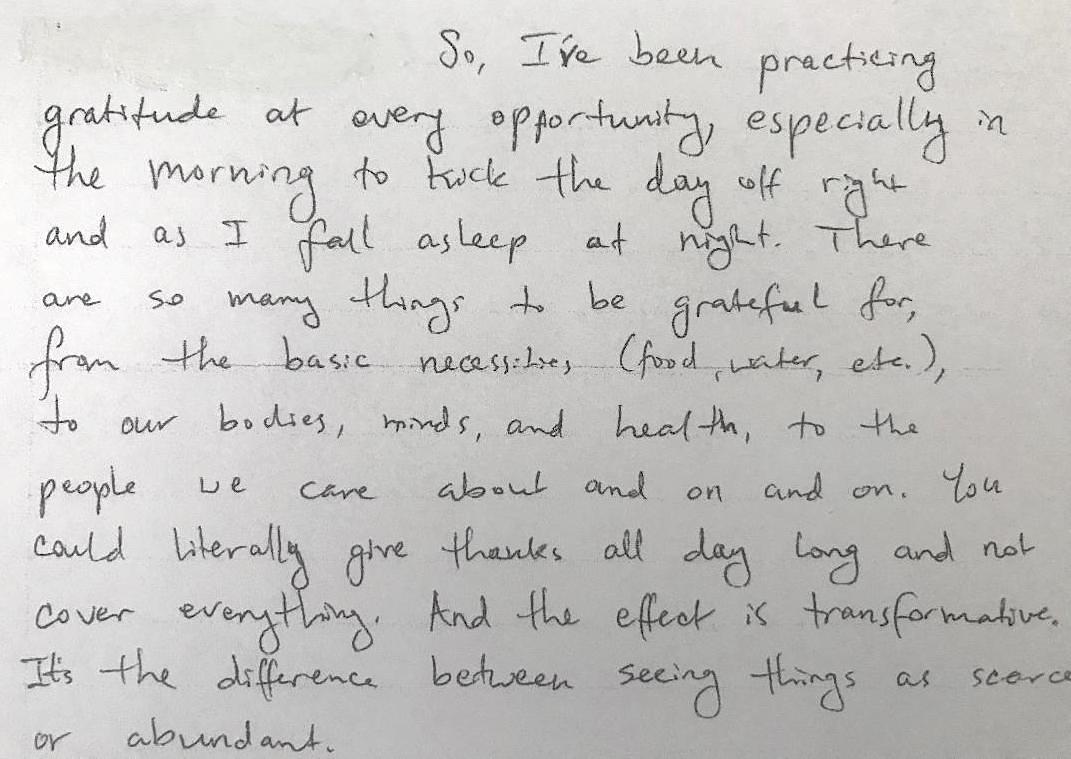 So, I've been practicing
gratitude at every opportunity, especially in
the morning to kick the day off right
and as I fall asleep at night. There
are so many things to be grateful for,
from the basic necessities (food, water, etc.),
to our bodies, minds, and health, to the
people we care about and on and on. You
could literally give thanks all day long and not
cover everything. And the effect is transformative.
It's the difference between seeing things as scarce
or abundant.